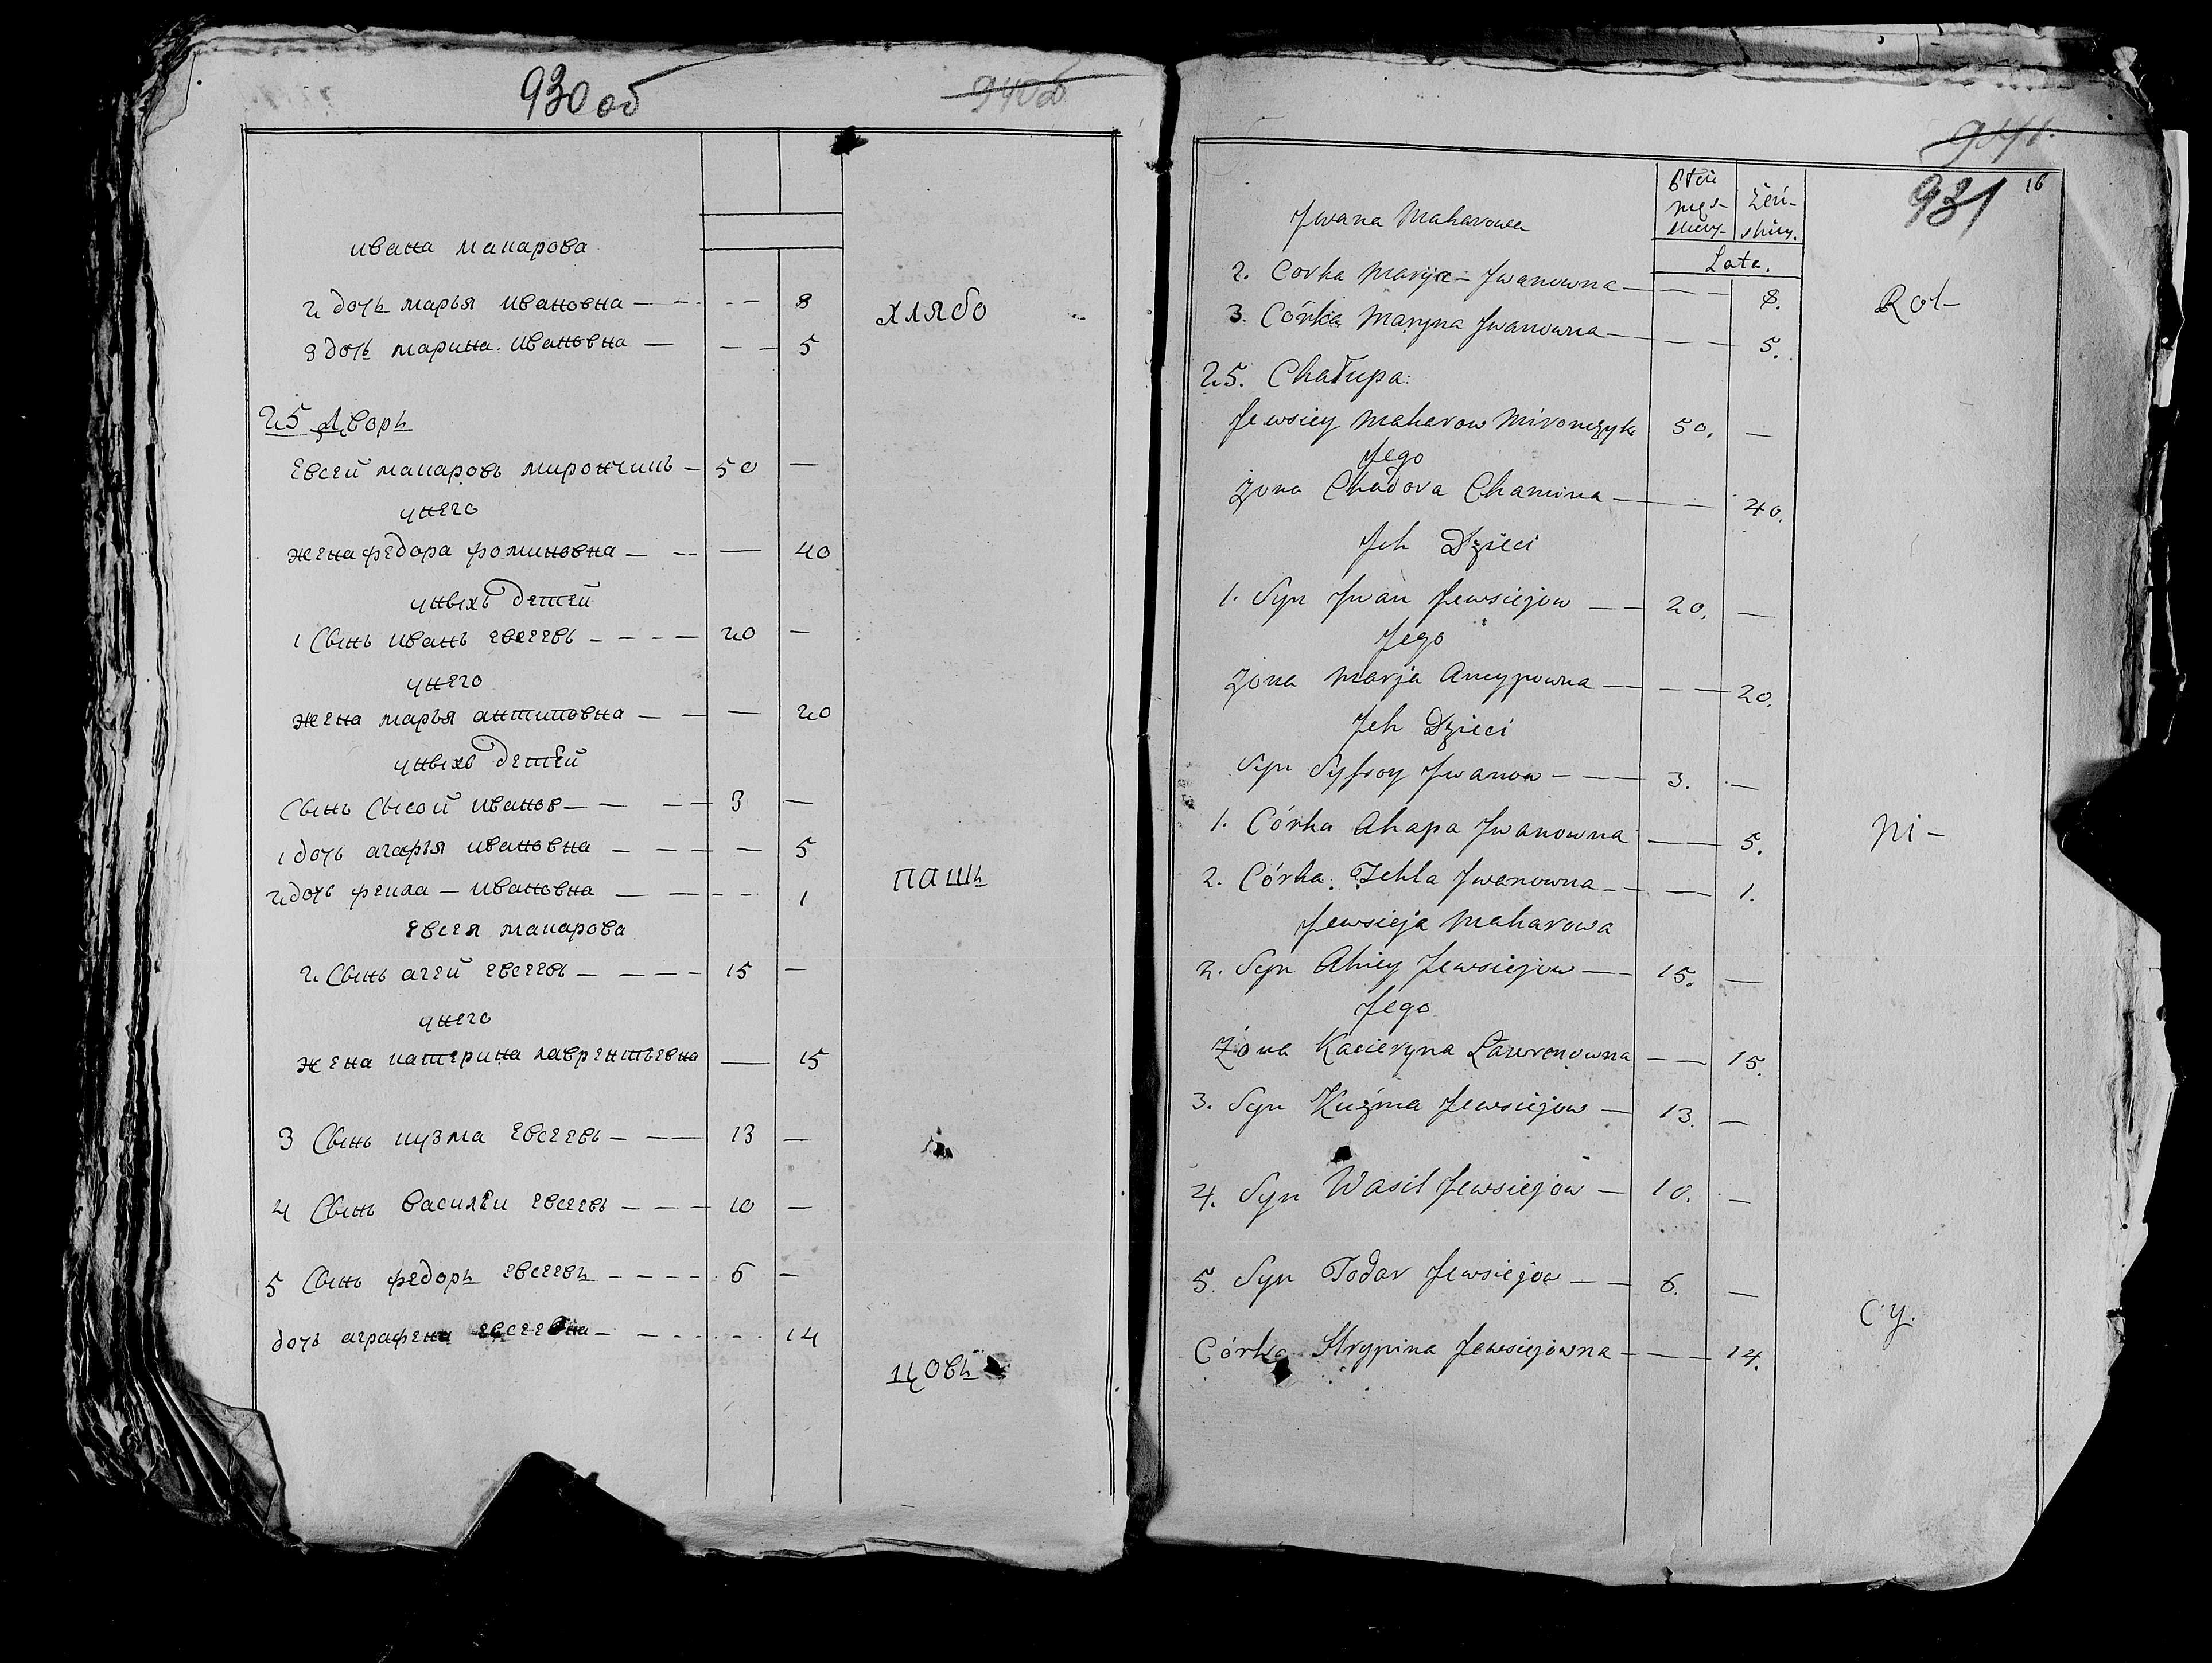 930 об
940 об
ивана макарова
2 дочь марья ивановна — — — — 8
3 дочь марина ивановна — — — 5
хлѣбо
25 Дворъ
Евсей макаровъ мирончикъ — 50 —
унего
жена федора фоминовна — — — 40
уныхъ детей
1 Сынъ иванъ евсеевъ — — — — 20 —
унего
жена марья антиповна — — — 20
уныхъ детей
Сынъ Сысой иванов — — — 3 —
1 дочь агафья ивановна — — — — 5
2 дочь фекла — ивановна — — — — 1
пашъ
Евсея макарова
2 Сынъ агей евсеевъ — — — — 15 —
унего
жена катерина лаврентьевна — 15
3 Сынъ кузма евсеевъ — — — 13 —
4 Сынъ василѣи евсеевъ — — — 10 —
5 Сынъ федоръ евсеевъ — — — — 6 —
дочь аграфена евсеевна — — — — 14
цовъ
941.
931
16
płci
męs-
kiey
żeń-
skiey.
Lata.
Jwana Makarowa
2. Corka Marja Jwanowna — — 8.
3. Córka Maryna Jwanowna — — — 5.
Rol-
25. Chałupa:
Jewsiey Makarow Mironczyk 50. —
Jego
Zona Chadora Chamina — — 40.
Jch Dzieci
1. Syn Jwan Jewsiejow — — 20. —
Jego
Zona Marja Ancypowna — — — 20.
Jch Dzieci
Syn Sysoy Jwanow — — — 3. —
1. Córka Ahapa Jwanowna — — 5.
ni-
2. Córka Tekla Jwanowna — — — 1.
Jewsieja Makarowa
2. Syn Ahiey Jewsiejow — — 15. —
Jego
Żona Kacieryna Ławrenowna — — 15.
3. Syn Kuźma Jewsiejow — 13. —
4. Syn Wasil Jewsiejow — 10. —
5. Syn Todar Jewsiejow — — 6. —
Córka Hrypina Jewsiejowna — — — 14.
cy.